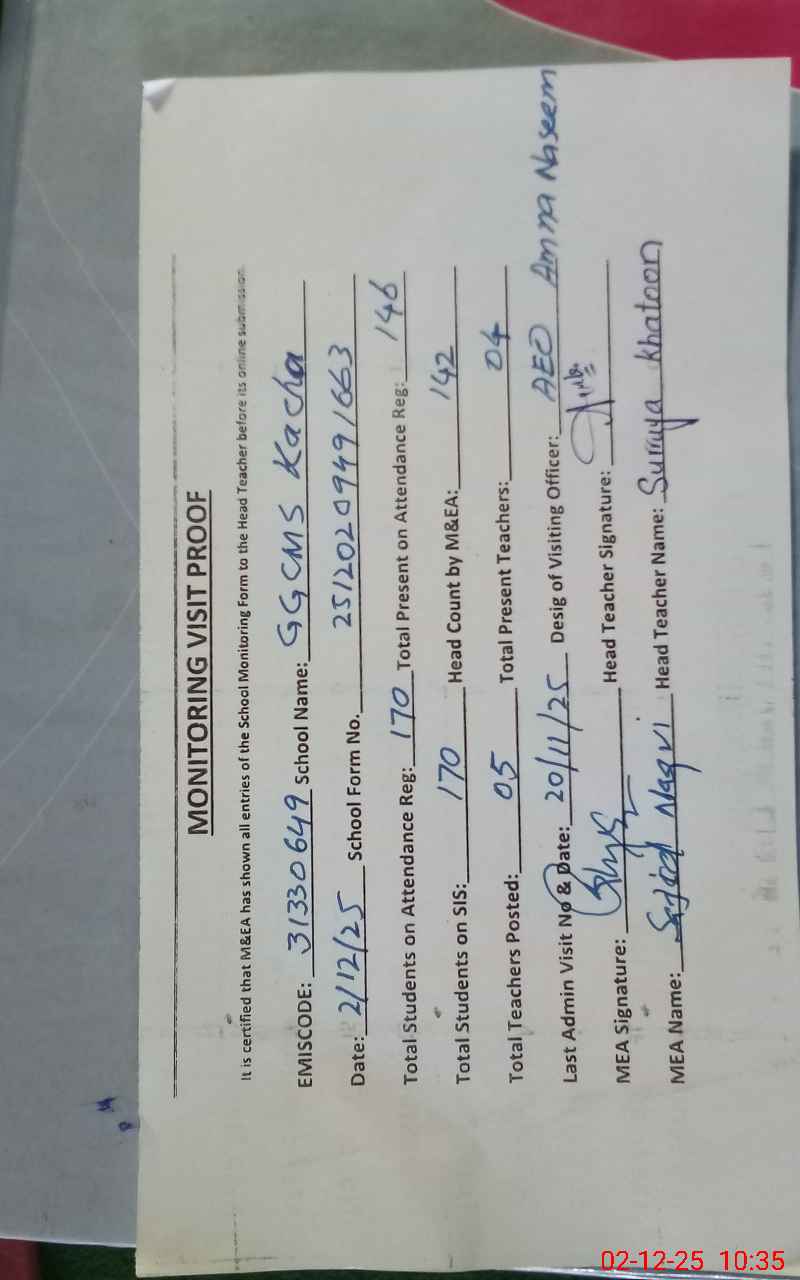 MONITORING VISIT PROOF
It is certified that M&EA has shown all entries of the School Monitoring Form to the Head Teacher before its online submission.
EMISCODE: 31330649 School Name: GGCMS Kacha
Date: 2/12/25 School Form No. 25120209491663
Total Students on Attendance Reg: 170 Total Present on Attendance Reg: 146
Total Students on SIS: 170 Head Count by M&EA: 142
Total Teachers Posted: 05 Total Present Teachers: 04
Last Admin Visit No & Date: 20/11/25 Desig of Visiting Officer: AEO Amna Naseem
MEA Signature: Head Teacher Signature:
MEA Name: Sajjad Naqvi Head Teacher Name: Surruya Khatoon
02-12-25 10:35